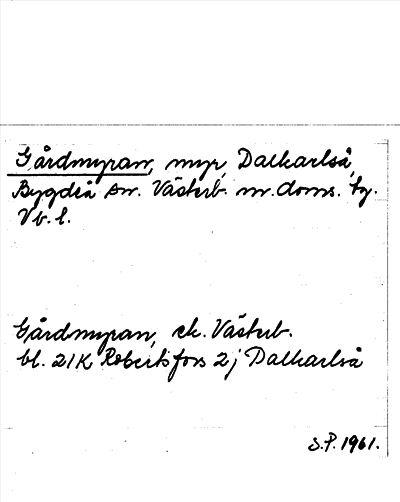 Gårdmyran, myr, Dalkarlså,
Bygdeå sn. Västerb. nr. doms. tg.
Vb. l.
Gårdmyran, ek. Västerb.
bl. 21K Robertsfors 2j Dalkarlså
S.P. 1961.